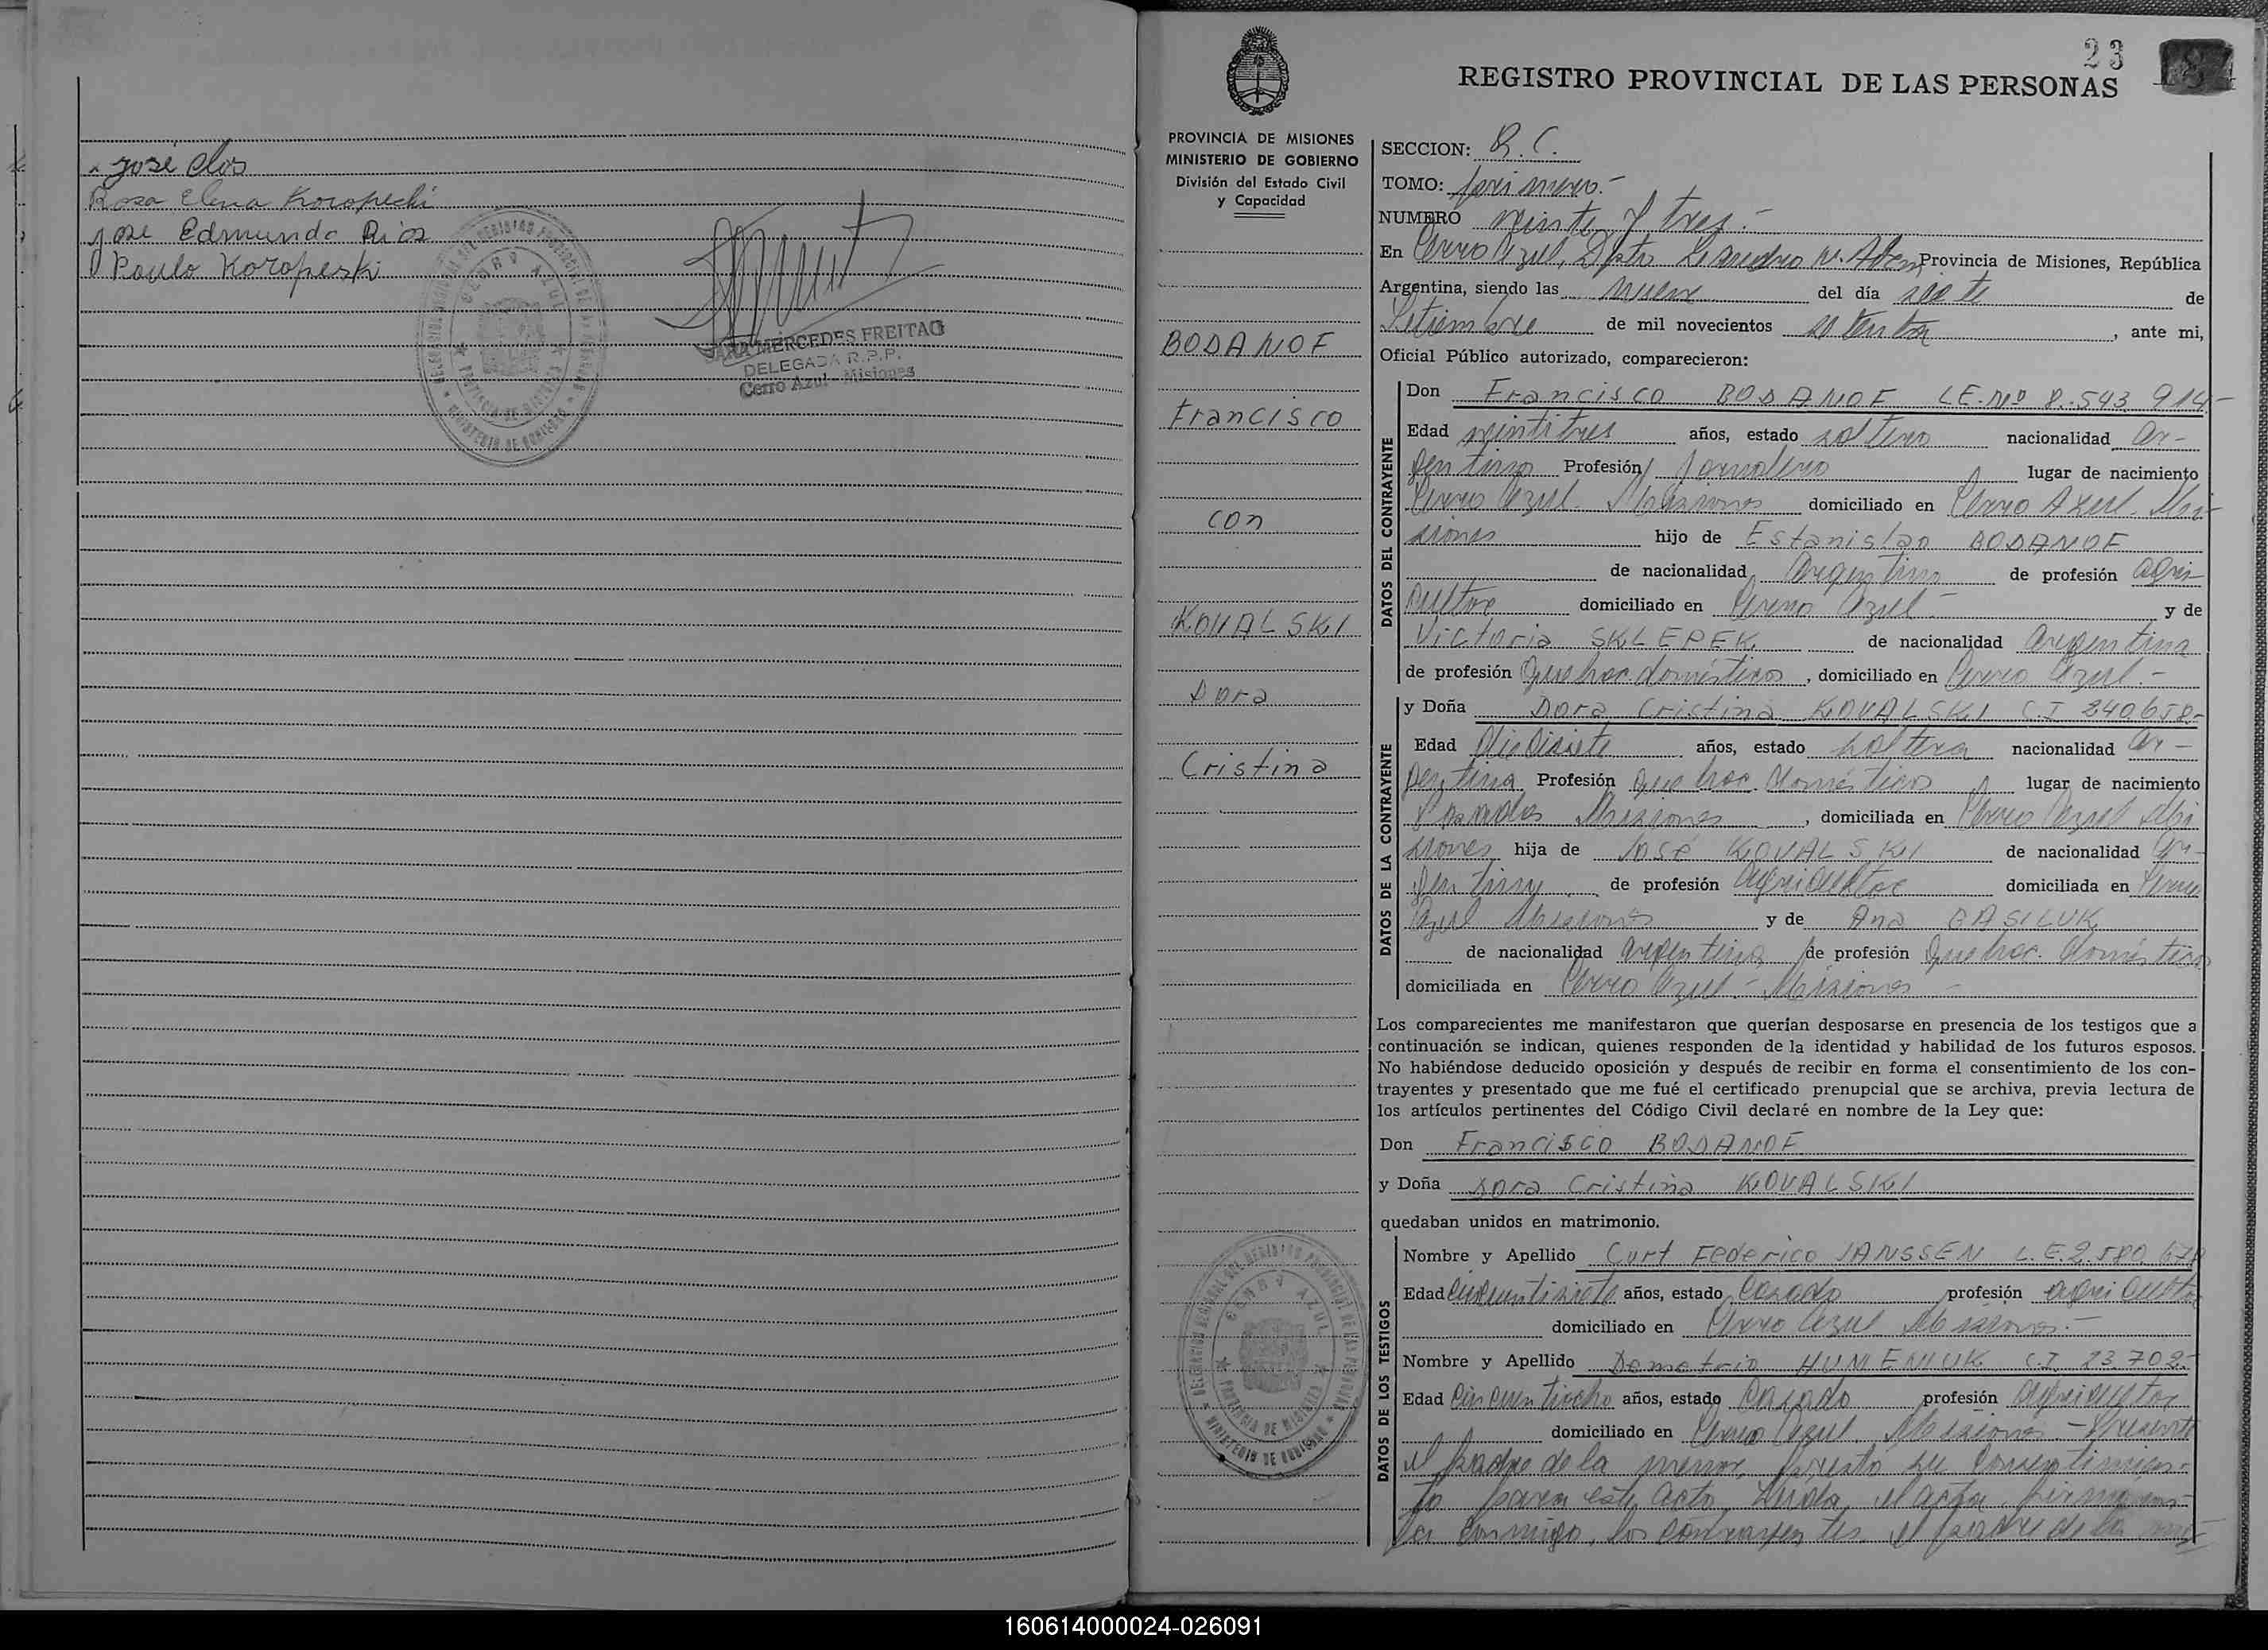 José Clos
Rosa Elena Koropeski
Jose Edmundo Rios
Paulo Koropeski
DELEGACION REGIONAL DEL REGISTRO PROVINCIAL DE LAS PERSONAS
CERRO AZUL
PROVINCIA DE MISIONES
MINISTERIO DE GOBIERNO
SARA MERCEDES FREITAG
DELEGADA R.P.P.
Cerro Azul - Misiones
23
REGISTRO PROVINCIAL DE LAS PERSONAS
PROVINCIA DE MISIONES
MINISTERIO DE GOBIERNO
División del Estado Civil
y Capacidad
BODANOF
Francisco
con
KOVALSKI
Dora
Cristina
DELEGACION REGIONAL DEL REGISTRO PROVINCIAL DE LAS PERSONAS
CERRO AZUL
PROVINCIA DE MISIONES
MINISTERIO DE GOBIERNO
SECCION: R.C.
TOMO: primero.-
NUMERO veinte y tres.-
En Cerro Azul, Dpto Leandro N. Alem Provincia de Misiones, República
Argentina, siendo las nueve del día siete de
Setiembre de mil novecientos setenta, ante mi,
Oficial Público autorizado, comparecieron:
DATOS DEL CONTRAYENTE
Don Francisco BODANOF LE. Nº 8.543.914-
Edad veintitres años, estado soltero nacionalidad Ar-
gentina Profesión Jornalero lugar de nacimiento
Cerro Azul. Misiones domiciliado en Cerro Azul. Mi-
siones hijo de Estanislao BODANOF
de nacionalidad Argentina de profesión Agri-
cultor domiciliado en Cerro Azul.- y de
Victoria SKLEPEK de nacionalidad Argentina
de profesión Quehac. domésticos, domiciliado en Cerro Azul.-
DATOS DE LA CONTRAYENTE
y Doña Dora Cristina KOVALSKI C.I 240.658.-
Edad Diecisiete años, estado soltera nacionalidad Ar-
gentina Profesión Quehac. domésticos lugar de nacimiento
Posadas Misiones, domiciliada en Cerro Azul Mi
siones hija de José KOVALSKI de nacionalidad Ar-
gentina de profesión Agricultor domiciliada en Cerro
Azul Misiones y de Ana BASILUK
de nacionalidad argentina de profesión Quehac. doméstico
domiciliada en Cerro Azul.- Misiones -
Los comparecientes me manifestaron que querían desposarse en presencia de los testigos que a
continuación se indican, quienes responden de la identidad y habilidad de los futuros esposos.
No habiéndose deducido oposición y después de recibir en forma el consentimiento de los con-
trayentes y presentado que me fué el certificado prenupcial que se archiva, previa lectura de
los artículos pertinentes del Código Civil declaré en nombre de la Ley que:
Don Francisco BODANOF
y Doña Dora Cristina KOVALSKI
quedaban unidos en matrimonio.
DATOS DE LOS TESTIGOS
Nombre y Apellido Curt Federico JANSSEN L.E. 2.580.678
Edad Cincuentisiete años, estado Casado profesión agricultor
domiciliado en Cerro Azul Misiones.-
Nombre y Apellido Demetrio HUMENIUK C.I 23.702.-
Edad Cincuentiocho años, estado Casado profesión Agricultor
domiciliado en Cerro Azul. Misiones - Presente
el padre de la menor, presto su consentimien-
to para este acto, Leida, el acta firman
conmigo, los contrayentes, el padre de la
160614000024-026091